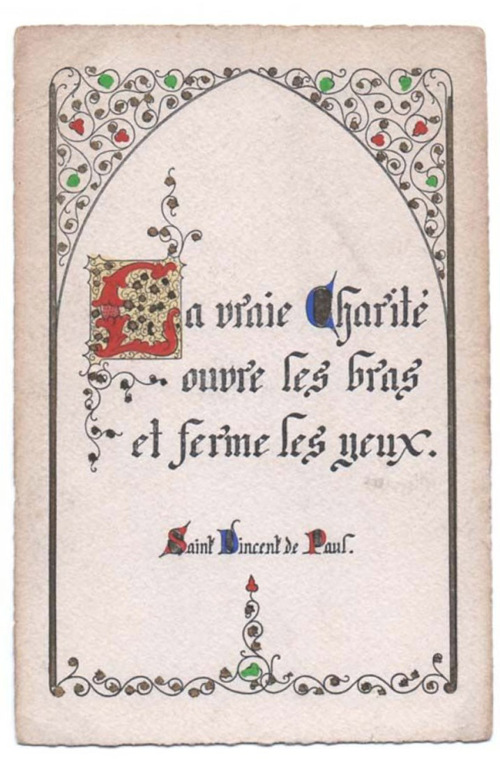 La vraie Charité
ouvre les bras
et ferme les yeux.
Saint Vincent de Paul.